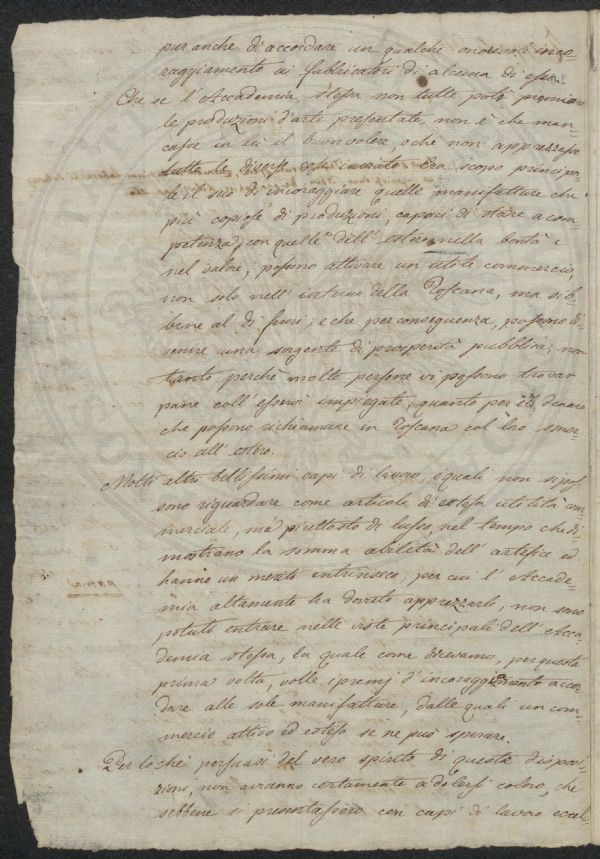 pur anche di accordare un qualche onorevole inco-
raggiamento ai fabbricatori di alcuna di esse.
Che se l'Accademia stessa non tutte potè premiare
le produzioni d'arte presentate, non è che man-
casse in lei il buon volere, o che non apprezzasse
tutte le diverse cose inviate. Era scopo principa-
le il suo di incoraggiare quelle manifatture che
più copiose di produzioni, capaci di stare a com-
petenza con quelle dell'estero nella bontà e
nel valore, possono attivare un utile commercio,
non solo nell'interno della Toscana, ma sib-
bene al di fuori, e che per conseguenza, possono di-
venire una sorgente di prosperità pubblica; non
tanto perchè molte persone vi possono trovar
pane coll'esservi impiegate, quanto per il denaro
che possono richiamare in Toscana col loro smer-
cio all'estero.
Molti altri bellissimi capi di lavoro, i quali non si pos-
sono riguardare come articoli di estesa utilità com-
merciale, ma piuttosto di lusso, nel tempo che di-
mostrano la somma abilità dell'artefice ed
hanno un merito intrinseco, per cui l'Accade-
mia altamente ha dovuto apprezzarli, non sono
potuti entrare nelle viste principali dell'Acca-
demia stessa, la quale come dicevamo, per questa
prima volta, volle i premj d'incoraggiamento accor-
dare alle sole manifatture, dalle quali un com-
mercio attivo ed esteso se ne può sperare.
Per lo chè persuasi del vero spirito di questa dispo-
zione, non avranno certamente a dolersi coloro, che
sebbene si presentassero con capi di lavoro eccel-